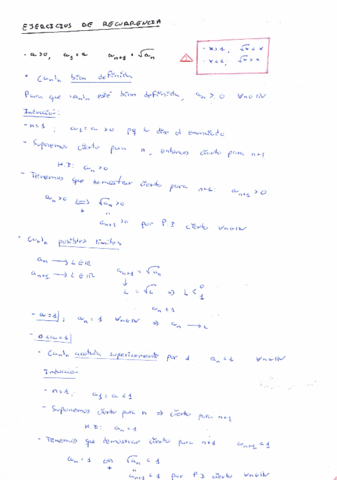 EJERCICIOS DE RECURRENCIA
· a>0, a₁=a aₙ₊₁=√aₙ
- x>1, √x<x
- x<1, √x>x
· (aₙ)ₙ bien definida
Para que (aₙ)ₙ esté bien definida, aₙ>0 ∀n∈ℕ
Inducción:
- n=1, a₁=a>0 pq lo dice el enunciado
- Suponemos cierto para n, entonces cierto para n+1
H.I: aₙ>0
- Tenemos que demostrar cierto para n+1: aₙ₊₁>0
aₙ>0 ⇔ √aₙ>0
aₙ₊₁>0 por P.I cierto ∀n∈ℕ
· (aₙ)ₙ posibles límites
aₙ → L∈ℝ aₙ₊₁=√aₙ
aₙ₊₁ → L∈ℝ L=√L ⇒ L 0 1
- a=1 aₙ=1 ∀n∈ℕ ⇒ aₙ→
- 0<a<1
· (aₙ)ₙ acotada superiormente por 1 ∀n∈ℕ
Inducción
- n=1, a₁=a<1
- Suponemos cierto para n ⇒ cierto para n+1
H.I: aₙ<1
- Tenemos que demostrar cierto para n+1 aₙ₊₁<1
aₙ<1 ⇔ √aₙ<1
aₙ₊₁<1 por P.I cierto ∀n∈ℕ